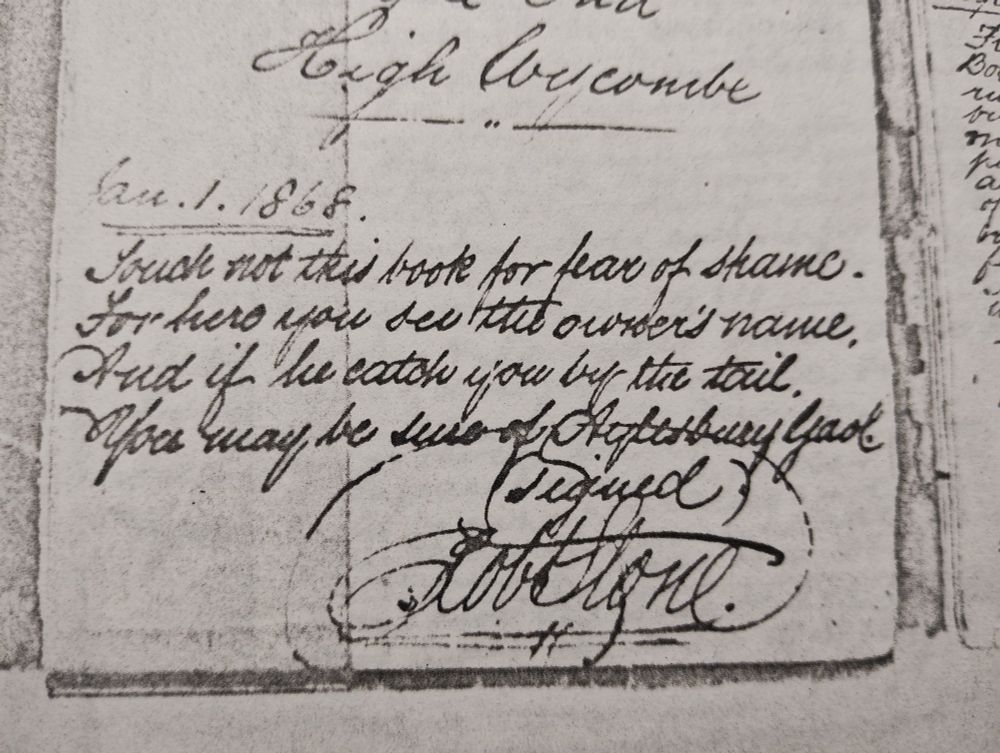 End
High Wycombe
"
Jan. 1. 1868.
Touch not this book for fear of shame.
For here you see the owner's name.
And if he catch you by the tail.
You may be sure of Aylesbury Gaol.
(signed)
Robt